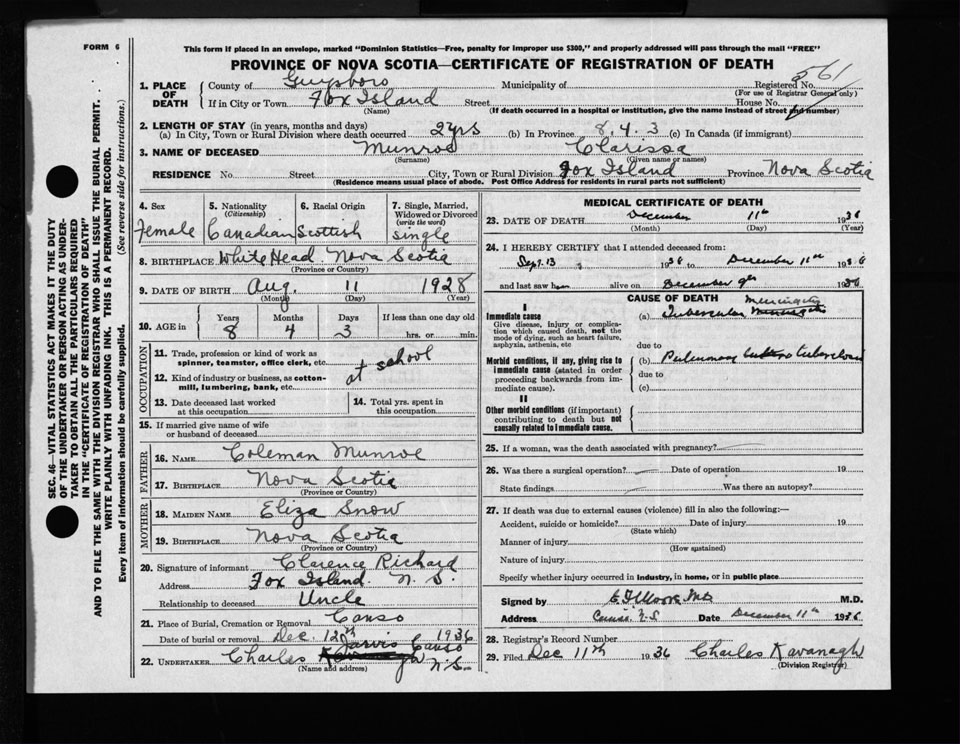 FORM 6
This form if placed in an envelope, marked "Dominion Statistics—Free, penalty for improper use $300," and properly addressed will pass through the mail "FREE"
PROVINCE OF NOVA SCOTIA—CERTIFICATE OF REGISTRATION OF DEATH
SEC. 46—VITAL STATISTICS ACT MAKES IT THE DUTY
OF THE UNDERTAKER OR PERSON ACTING AS UNDER-
TAKER TO OBTAIN ALL THE PARTICULARS REQUIRED
IN THE "CERTIFICATE OF REGISTRATION OF DEATH"
AND TO FILE THE SAME WITH THE DIVISION REGISTRAR WHO SHALL ISSUE THE BURIAL PERMIT.
WRITE PLAINLY WITH UNFADING INK. THIS IS A PERMANENT RECORD.
Every item of information should be carefully supplied. (See reverse side for instructions.)
1. PLACE OF DEATH County of Guysboro Municipality of Registered No. 561
(For use of Registrar General only)
If in City or Town Fox Island Street House No.
(Name) (If death occurred in a hospital or institution, give the name instead of street and number)
2. LENGTH OF STAY (in years, months and days)
(a) In City, Town or Rural Division where death occurred 2 yrs (b) In Province 8. 4. 3 (c) In Canada (if immigrant)
3. NAME OF DECEASED Munroe Clarissa
(Surname) (Given name or names)
RESIDENCE No. Street City, Town or Rural Division Fox Island Province Nova Scotia
(Residence means usual place of abode. Post Office Address for residents in rural parts not sufficient)
4. Sex Female
5. Nationality (Citizenship) Canadian
6. Racial Origin Scottish
7. Single, Married, Widowed or Divorced (write the word) Single
8. BIRTHPLACE White Head Nova Scotia
(Province or Country)
9. DATE OF BIRTH Aug. 11 1928
(Month) (Day) (Year)
10. AGE in Years Months Days If less than one day old
8 4 3 hrs. or min.
OCCUPATION
11. Trade, profession or kind of work as spinner, teamster, office clerk, etc. at school
12. Kind of industry or business, as cotton-mill, lumbering, bank, etc.
13. Date deceased last worked at this occupation
14. Total yrs. spent in this occupation
15. If married give name of wife or husband of deceased
FATHER
16. NAME Coleman Munroe
17. BIRTHPLACE Nova Scotia
(Province or Country)
MOTHER
18. MAIDEN NAME Eliza Snow
19. BIRTHPLACE Nova Scotia
(Province or Country)
20. Signature of informant Clarence Richard
Address Fox Island N. S.
Relationship to deceased Uncle
21. Place of Burial, Cremation or Removal Canso
Date of burial or removal Dec. 12th 1936
22. UNDERTAKER Charles Jarvis Canso N.S.
(Name and address)
MEDICAL CERTIFICATE OF DEATH
23. DATE OF DEATH December 11th 1936
(Month) (Day) (Year)
24. I HEREBY CERTIFY that I attended deceased from:
Sept. 13 1936 to December 11th 1936
and last saw her alive on December 9th 1936
CAUSE OF DEATH
I
Immediate cause
Give disease, injury or complication which caused death, not the mode of dying, such as heart failure, asphyxia, asthenia, etc.
(a) Tubercular Meningitis
due to
Morbid conditions, if any, giving rise to immediate cause (stated in order proceeding backwards from immediate cause).
(b) Pulmonary tuberculosis
due to
(c)
II
Other morbid conditions (if important) contributing to death but not causally related to immediate cause.
25. If a woman, was the death associated with pregnancy?
26. Was there a surgical operation? Date of operation 19
State findings Was there an autopsy?
27. If death was due to external causes (violence) fill in also the following:—
Accident, suicide or homicide? Date of injury 19
(State which)
Manner of injury
(How sustained)
Nature of injury
Specify whether injury occurred in industry, in home, or in public place
Signed by Moore M.D.
Address Canso. N.S. Date December 11th 1936
28. Registrar's Record Number
29. Filed Dec 11th 1936 Charles Kavanagh
(Division Registrar)